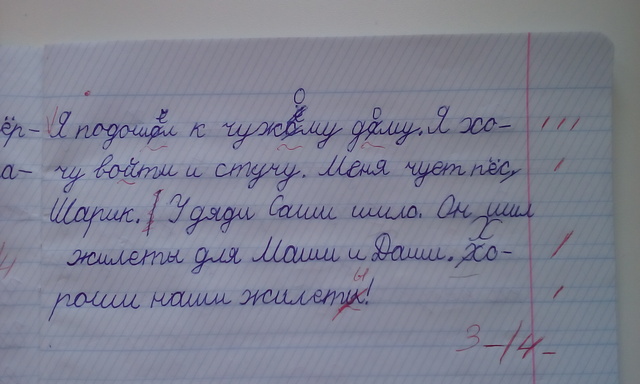 ёр- Я подошёл к чужому дому. Я хо-
а- чу войти и стучу. Меня чует пёс,
Шарик. У дяди Саши шило. Он шил
жилеты для Маши и Даши. Хо-
роши наши жилеты!
3-/4-